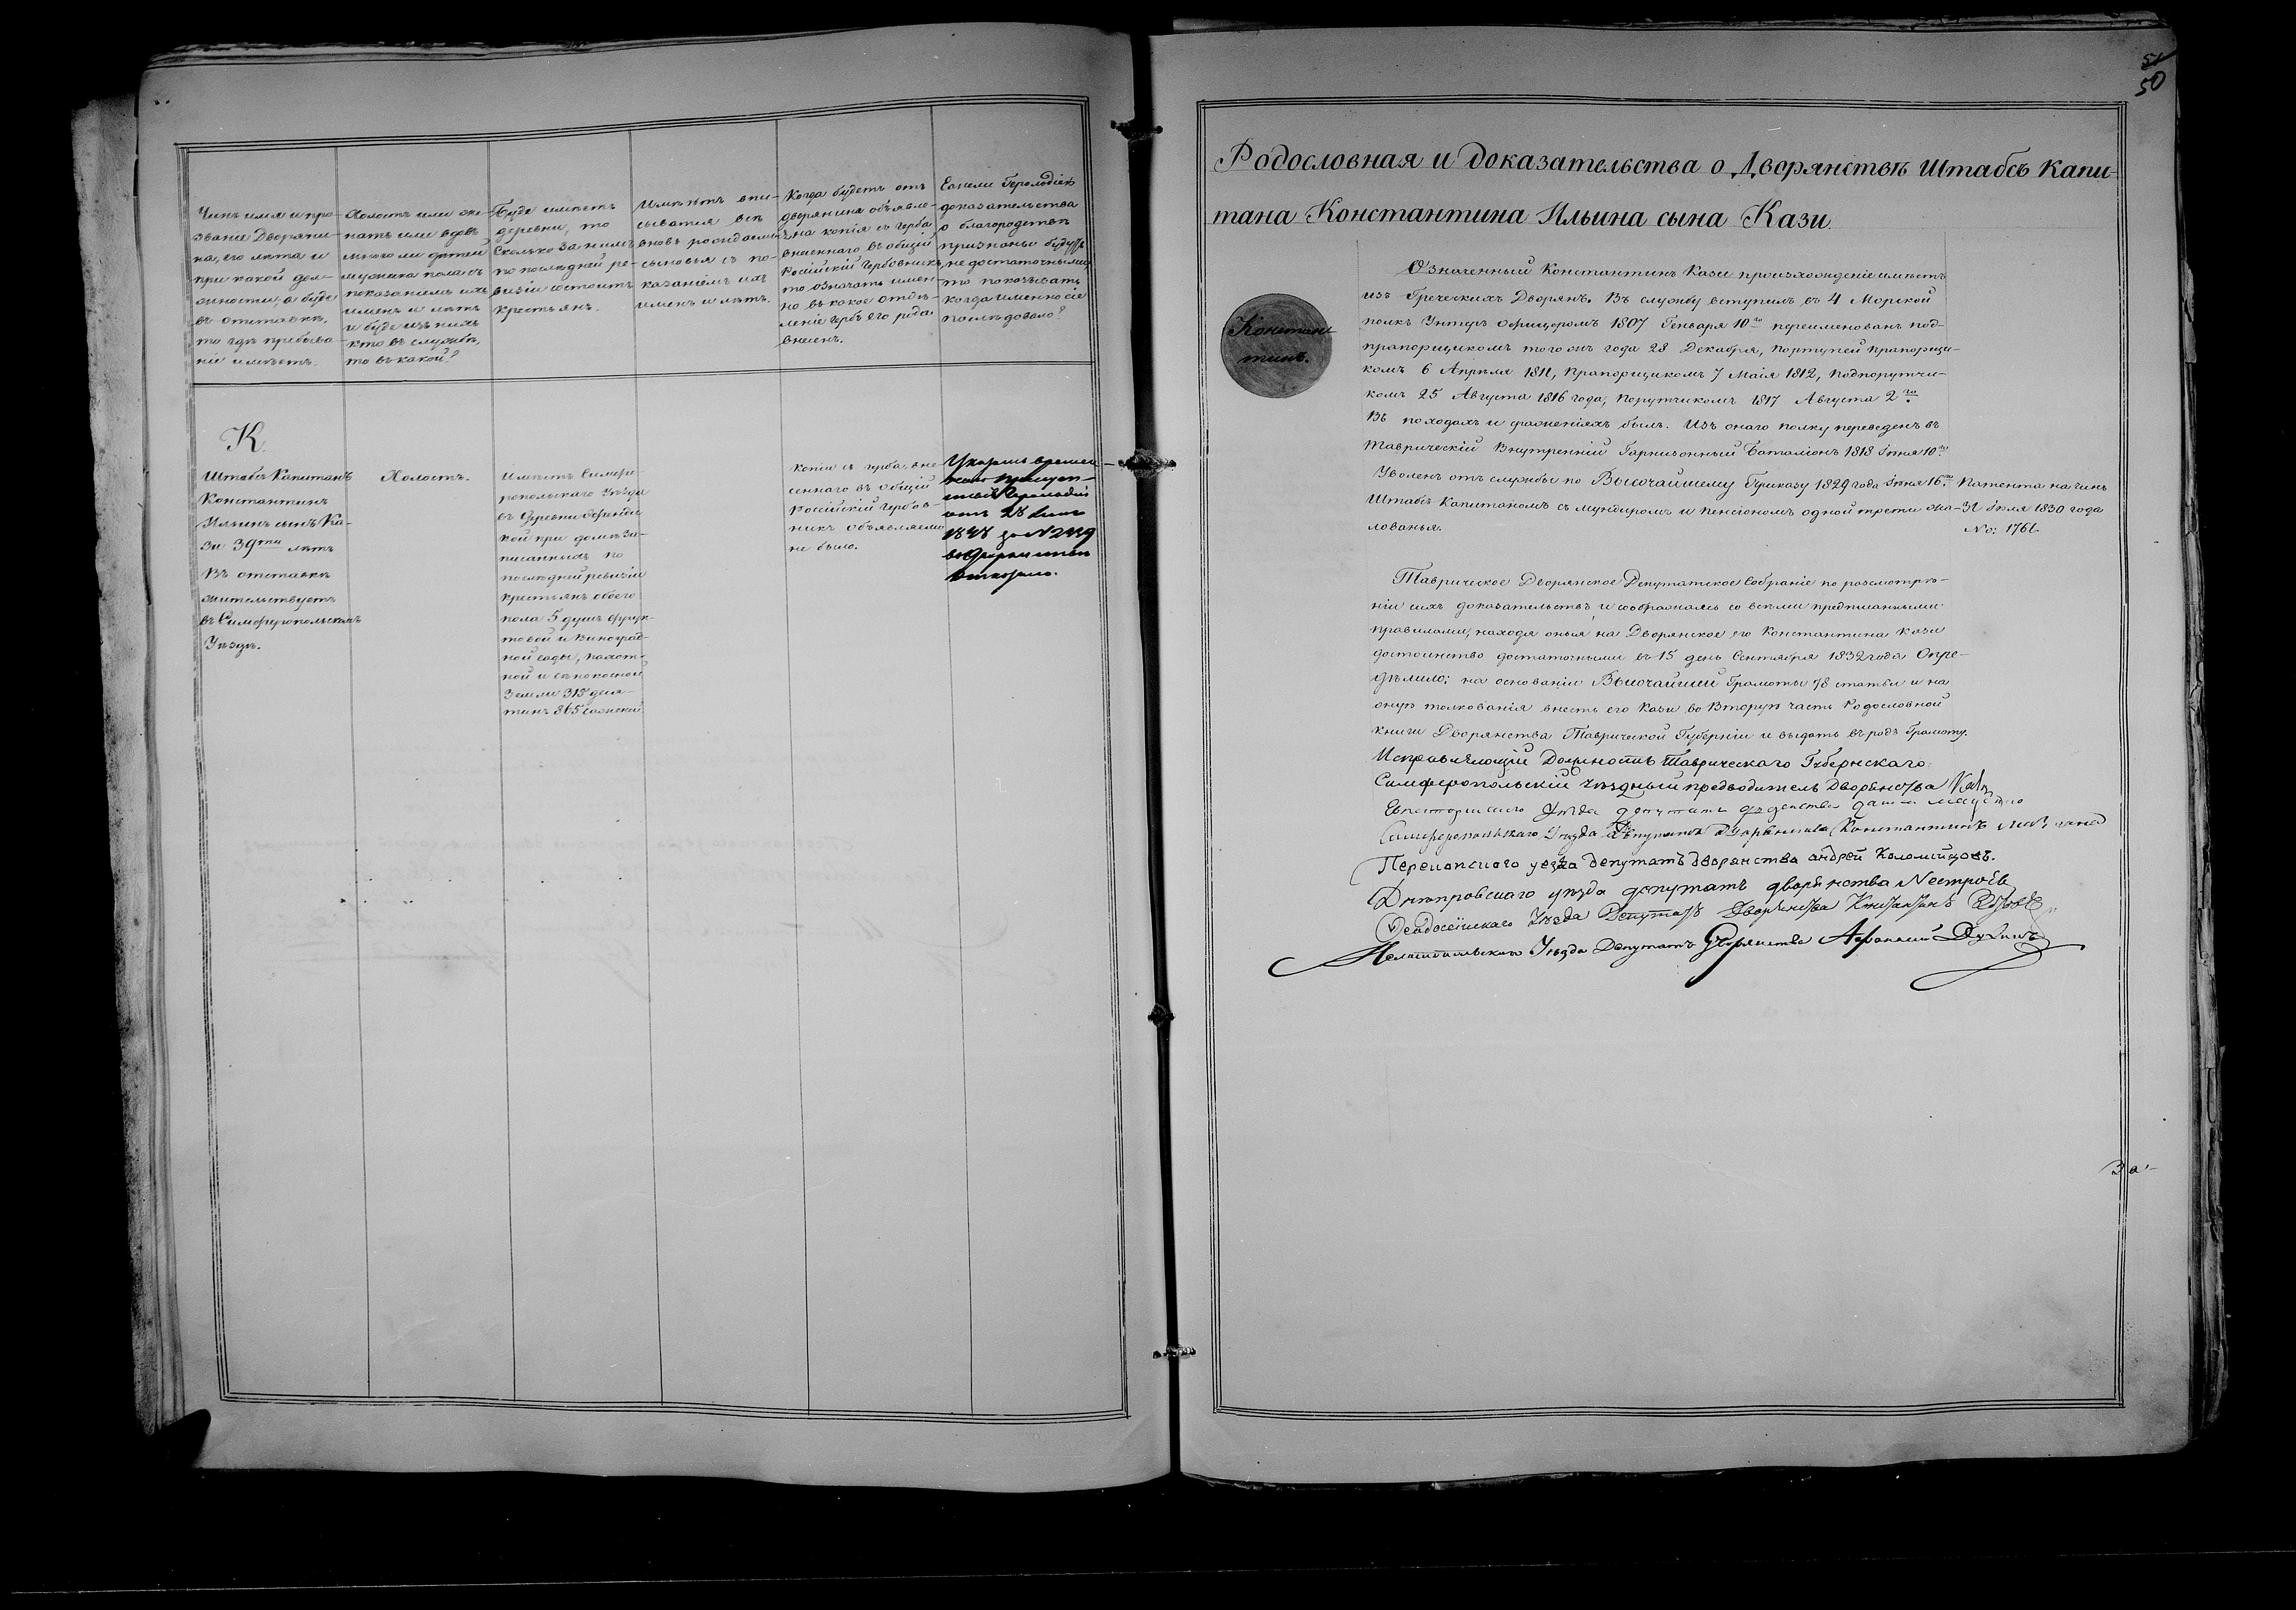 Чинъ имя и про-
званіе Дворяни-
на, его лѣта и
при какой дол-
жности, а буде
въ отставкѣ,
то гдѣ пребыва-
ніе имѣетъ.
Холостъ или же-
натъ или вдовъ
много ли дѣтей
мужеска пола съ
показаніемъ ихъ
именъ и лѣтъ
и буде изъ нихъ
кто въ службѣ,
то въ какой?
Буде имѣетъ
деревни, то
сколько за нимъ
по послѣдней ре-
визіи состоитъ
крестьянъ.
Имѣютъ впи-
сыватся всѣ
вновь рождаемые
сыновья съ по-
казаніемъ ихъ
именъ и лѣтъ.
Когда будетъ отъ
дворянина объявле-
на копія съ герба
внесеннаго въ общій
Россійскій Гербовникъ,
то означать имен-
но въ какое отдѣ-
леніе гербъ его рода
внесенъ.
Ежели Герольдіею
доказательства
о благородствѣ
признаны будутъ
не достаточными,
то показывать
когда именно сіе
послѣдовало?
К.
Штабсъ Капитанъ
Константинъ
Ильинъ сынъ Ка-
зи 39ти лѣтъ
Въ отставкѣ
жительствуетъ
въ Симферопольскомъ
Уѣздѣ.
Холостъ.
Имѣетъ Симфе-
ропольскаго Уѣзда
въ Деревни
кой при домѣ за-
писанныхъ по
послѣдней ревизіи
крестьянъ обоего
пола 5 душъ фрук-
товой и Виноград-
ной сады, пахот-
ной и сѣнокосной
Земли 318 деся-
тинъ 865 саженей
копіи съ герба вне-
сеннаго въ Общій
Россійскій Гербов-
никъ объявляемо
не было.
Указомъ времен-
наго присут-
ствія Герольдіи
отъ 28
1848 за N 2229
въ Дворянствѣ
отказано.
51
50
Родословная и доказательства о Дворянствѣ Штабсъ Капи-
тана Константина Ильина сына Кази.
Констан-
тинъ.
Означенный Константинъ Кази произхожденіе имѣетъ
изъ Греческихъ Дворянъ. Въ службу вступилъ въ 4 Морской
полкъ Унтеръ Офицеромъ 1807 Генваря 10го переименованъ под-
прапорщикомъ того жъ года 28 Декабря, Портупей прапорщи-
комъ 6 Апрѣля 1811, Прапорщикомъ 7 Маія 1812, Подпорутчи-
комъ 25 Августа 1816 года, Порутчикомъ 1817 Августа 2го.
Въ походахъ и сраженіяхъ былъ. Изъ онаго полку переведенъ въ
Таврическій Внутренній Гарнизонный Баталіонъ 1818 Іюня 10го.
Уволенъ отъ службы по Высочайшему Приказу 1829 года Іюня 16го.
Штабсъ Капитаномъ съ мундиромъ и пенсіономъ одной трети жа-
лованья.
Патента на чинъ
31 Іюля 1830 года
No: 1761.
Таврическое Дворянское Депутатское Собраніе по разсмотрѣ-
ніи сихъ доказательствъ и сообразжаясь со всѣми предписанными
правилами, находя оныя на Дворянское его Константина Кази
достоинство достаточными въ 15 день Сентября 1832 года Опре-
дѣлило: на основаніи Высочайшей Грамоты 78 статьи и на
оную толкованія внесть его Кази во Вторую часть Родословной
книги Дворянства Таврической Губерніи и выдать въ родъ Грамоту.
Исправляющій Должность Таврическаго Губернскаго
Симферопольскій Уѣздный предводитель Дворянства
Евпаторійскаго Уѣзда депутатъ
Симферопольскаго Уѣзда Депутатъ Дворянства Константинъ
Перекопскаго уезда депутатъ дворанства андрей Коломійцовъ.
Днѣпровскаго уѣзда депутатъ дворянства Нестроевъ
Ѳеодосійскаго Уѣзда Депутатъ Дворянства
Мелитопольскаго Уѣзда Депутатъ Дворянства Афанасій
За-